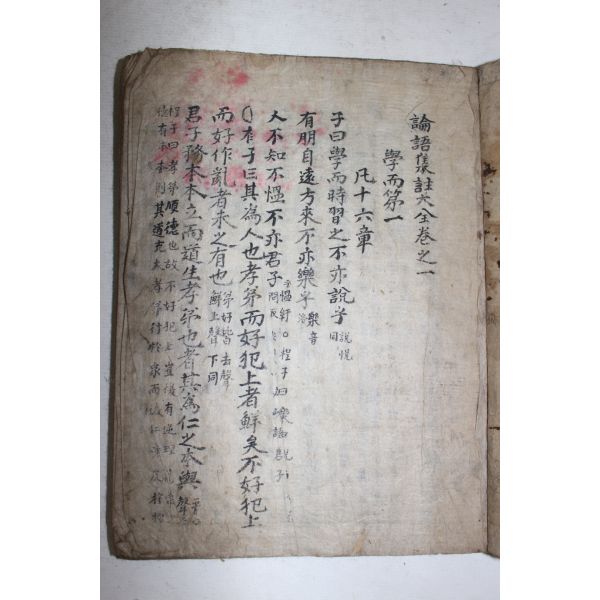 論語集註大全卷之一
學而第一
凡十六章
子曰學而時習之不亦說乎 說悅同
有朋自遠方來不亦樂乎 樂音洛
人不知不慍不亦君子乎 慍紆問反 ○程子曰
○有子曰其為人也孝弟而好犯上者鮮矣不好犯上
而好作亂者未之有也 弟好皆去聲鮮上聲下同
君子務本本立而道生孝弟也者其為仁之本與 聲
程子曰孝弟順德也故不好犯上豈復有逆理
德有本本
則其道充大孝弟行於家而